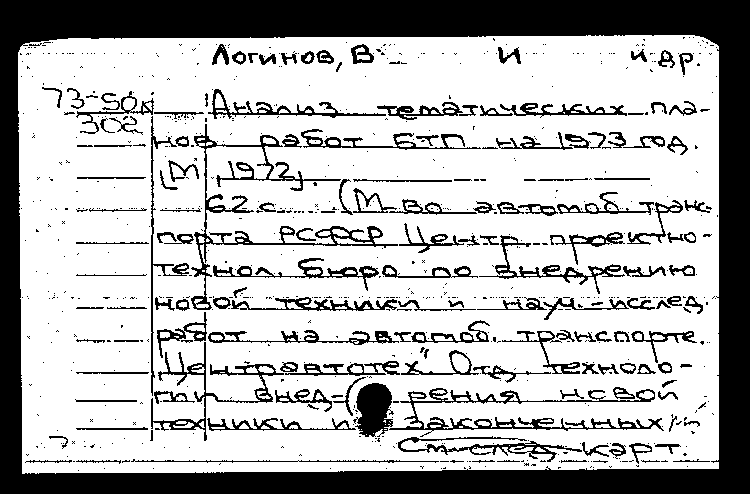 Логинов, В И и др.
73-50к Анализ тематических пла-
302 нов работ БТП на 1973 год.
[М, 1972].
62 с. (М-во автомоб. транс-
порта РСФСР. Центр. проектно-
технол. бюро по внедрению
новой техники и науч.-исслед.
работ на автомоб. транспорте.
"Центравтотех". Отд. техноло-
гии внед- рения новой
техники и законченных
См. след. карт.